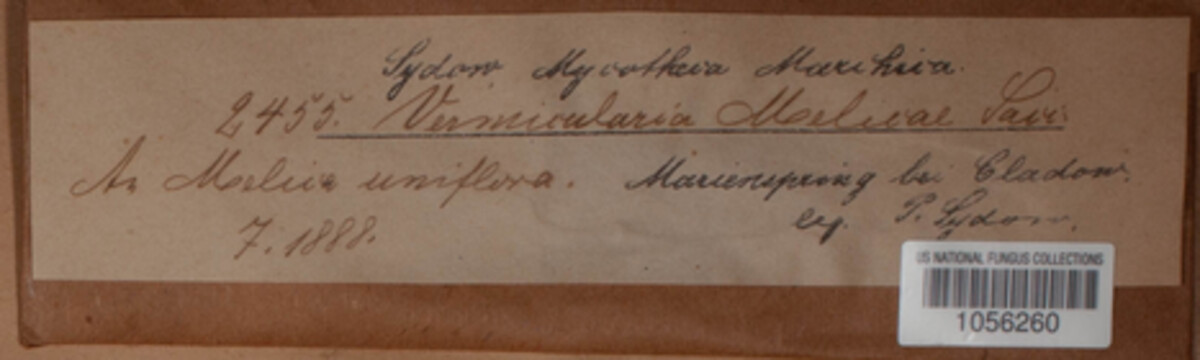 Sydow Mycotheca Marchica.
2455. Vermicularia Melicae
An Melica uniflora. Marienspring bei Cladow.
7. 1888. leg. P. Sydow.
US NATIONAL FUNGUS COLLECTIONS
1056260